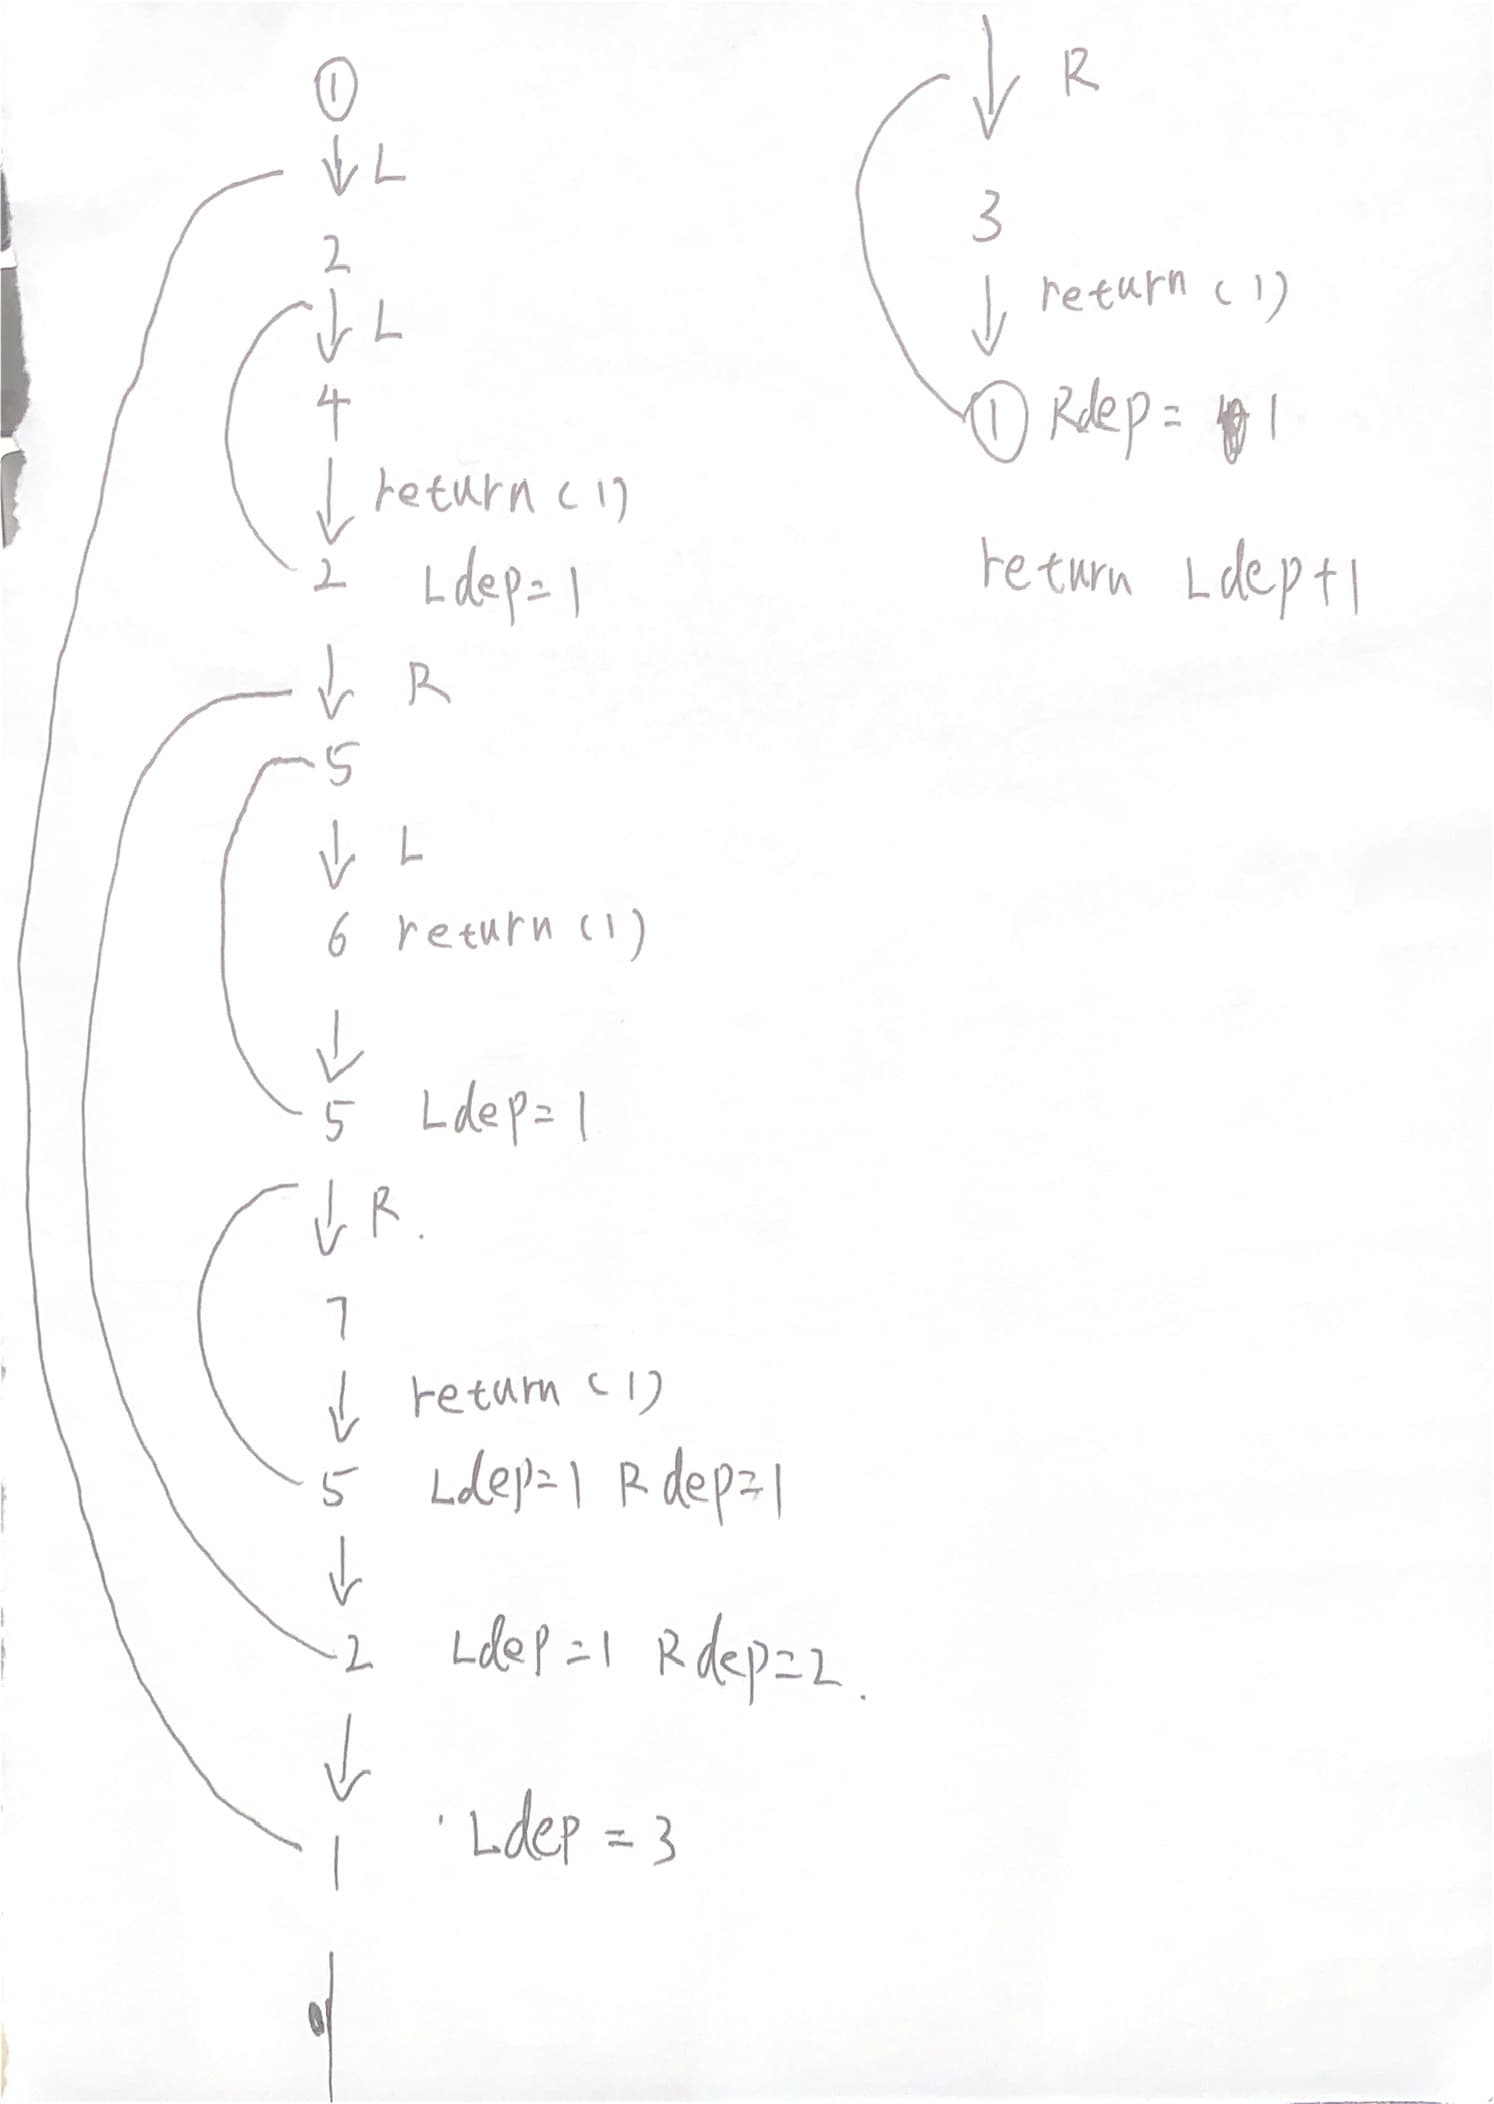 ①
↓ L
2
↓ L
4
↓ return (1)
2 Ldep=1
↓ R
5
↓ L
6 return (1)
↓
5 Ldep=1
↓ R.
7
↓ return (1)
5 Ldep=1 Rdep=1
↓
2 Ldep=1 Rdep=2.
↓
1 Ldep=3
↓ R
3
↓ return (1)
① Rdep= 1
return Ldep+1